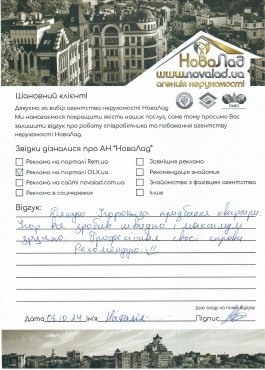 НоваЛад
www.novalad.ua
агенція нерухомості
Шановний клієнт!
Дякуємо за вибір агентства нерухомості НоваЛад
Ми намагаємося покращити якість наших послуг, саме тому просимо Вас
залишити відгук про роботу співробітника та побажання агентству
нерухомості НоваЛад.
Звідки дізналися про АН "НоваЛад"
Реклама на порталі Rem.ua
Зовнішня реклама
Реклама на порталі OLX.ua
Рекомендація знайомих
Реклама на сайті novalad.com.ua
Знайомство з фахівцем агентства
Реклама в соцмережах
Інше
Відгук:
Дякуємо Ігорю за придбання квартири.
Ігор все зробив швидко і максимально
зручно. Професіонал своєї справи
Рекомендую!!!
Даю згоду на показ відгуку
Дата 03.10.24 ім'я Наталія Підпис